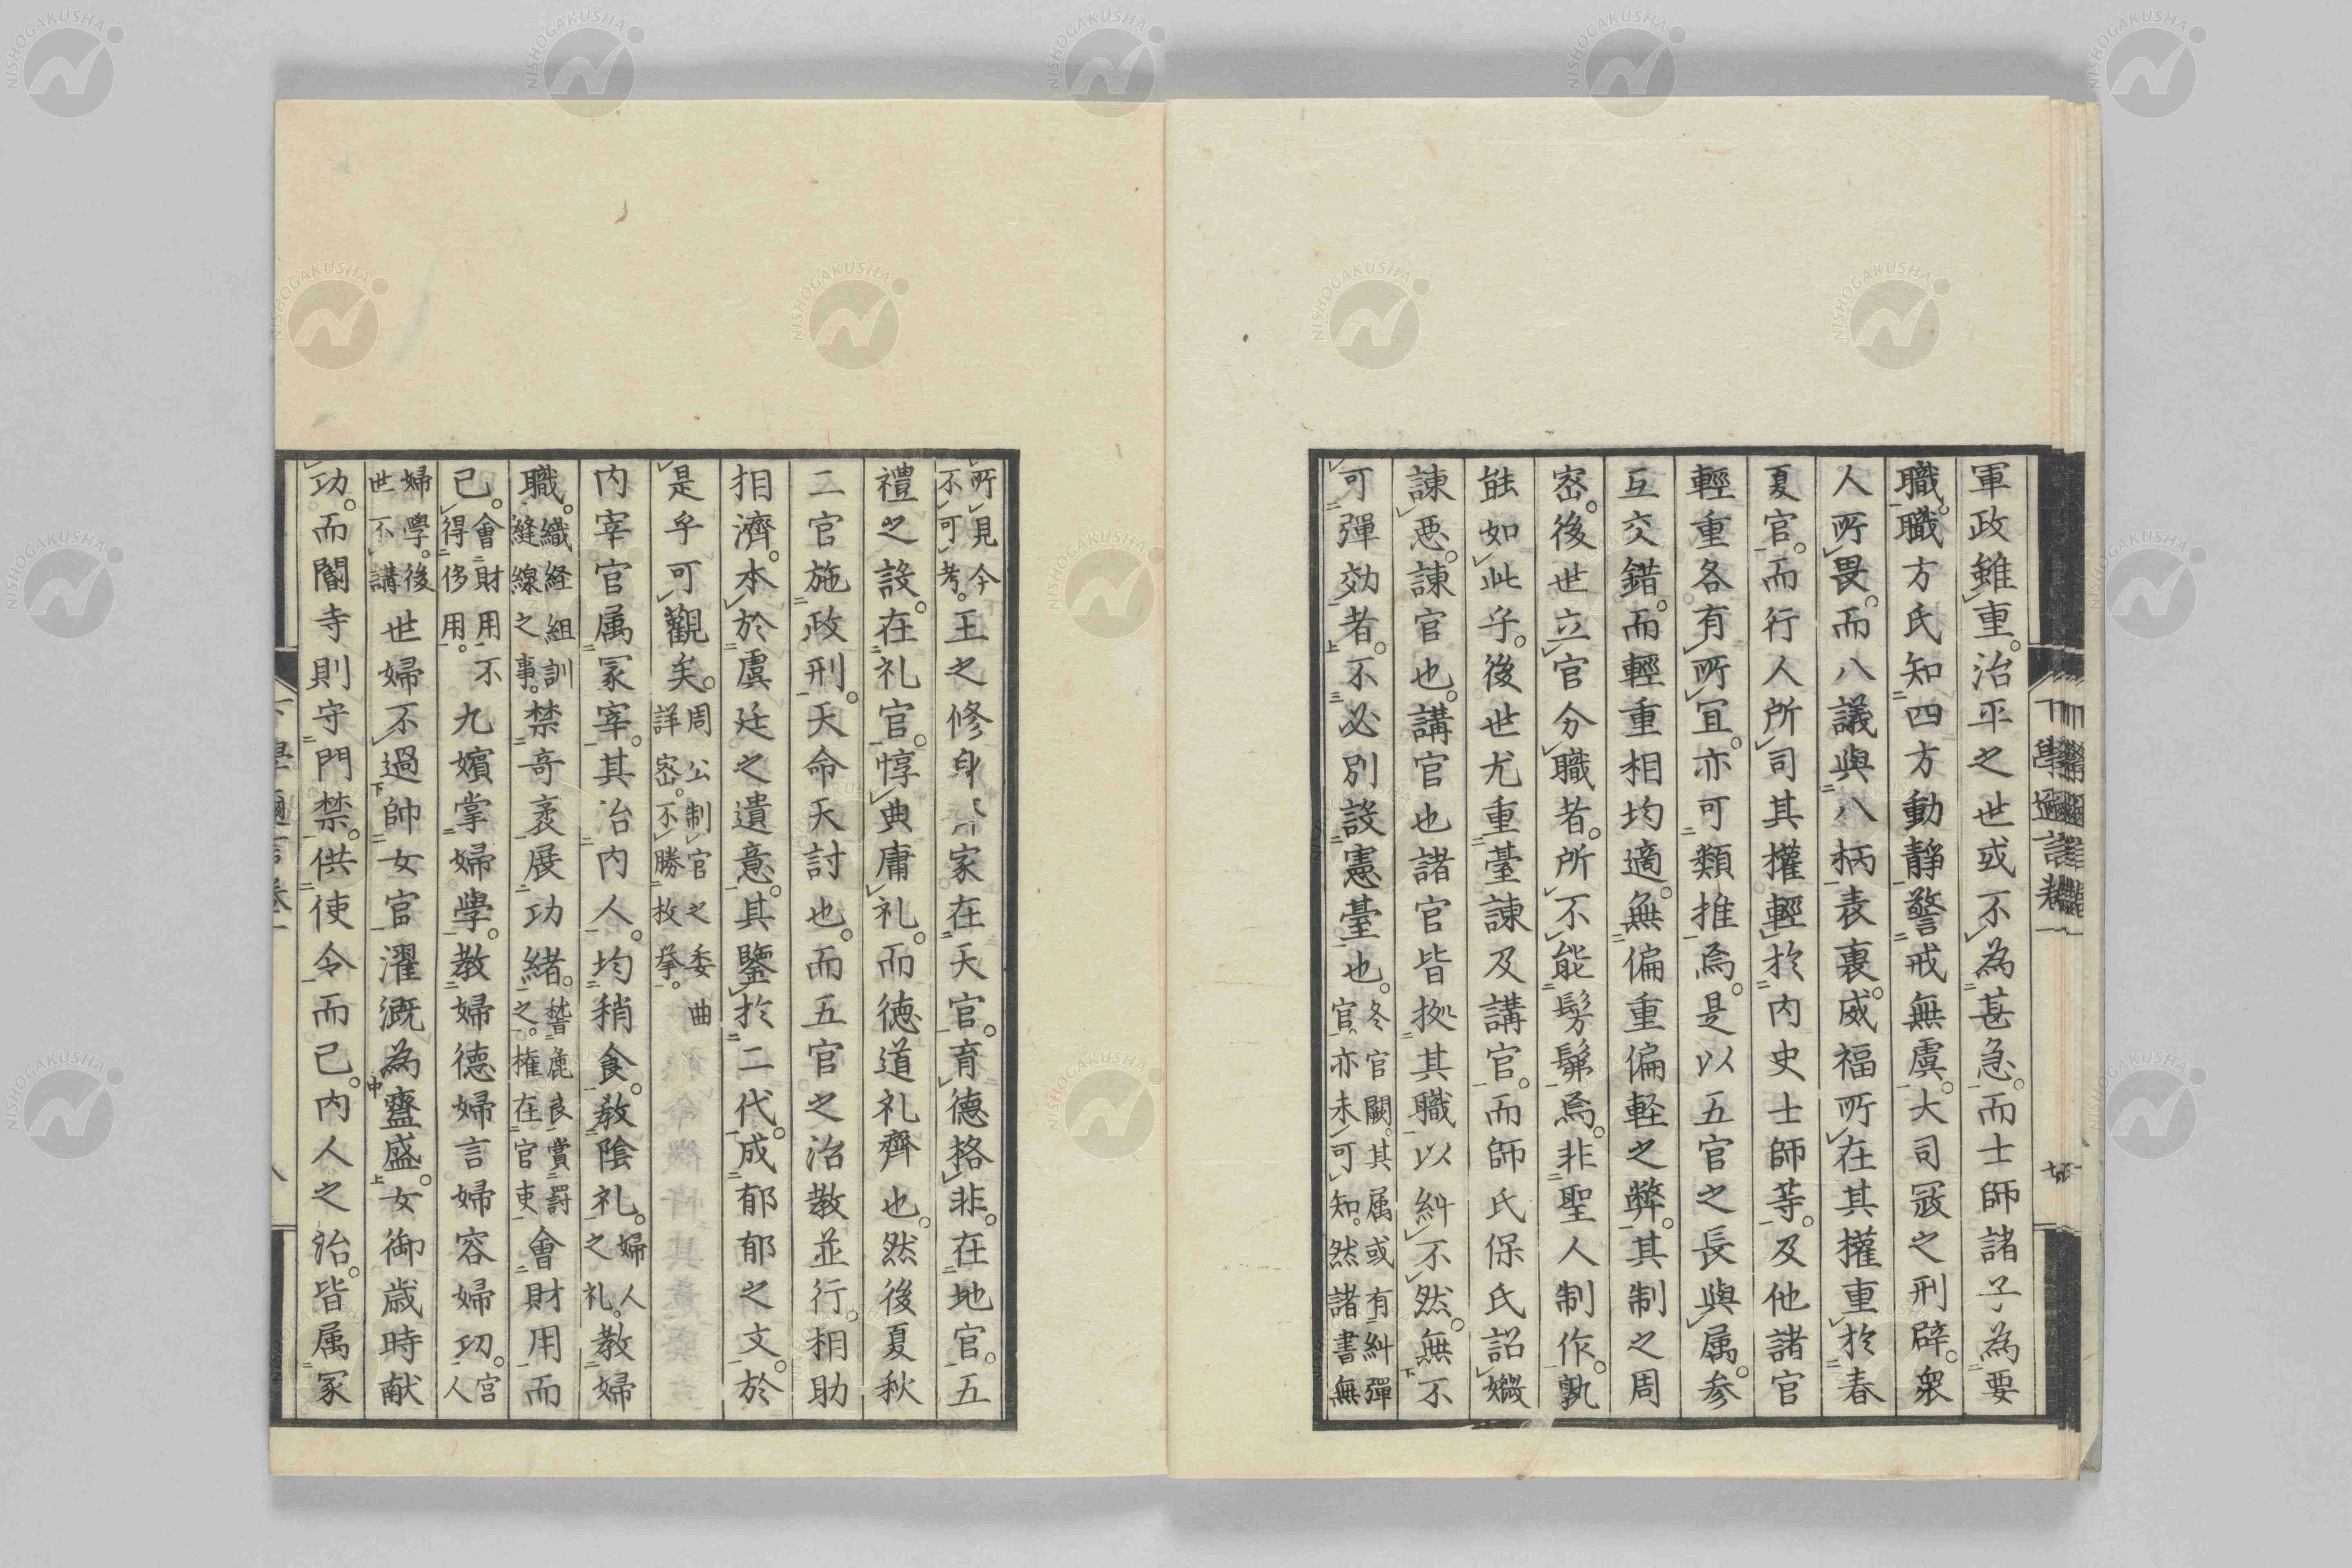 軍政雖重。治平之世或不為甚急。而士師諸子為要
職。職方氏知四方動静警戒無虞。大司寇之刑辟。衆
人所畏。而八議與八柄表裏。威福所在其權重於春
夏官。而行人所司其權輕於内史士師等。及他諸官
輕重各有所宜。亦可類推焉。是以五官之長與属。参
互交錯。而輕重相均適。無偏重偏軽之弊。其制之周
宻。後世立官分職者。所不能髣髴焉。非聖人制作。孰
能如此乎。後世尤重臺諌及講官。而師氏保氏詔媺
諌悪。諌官也。講官也諸官皆拠其職以糾不然。無不
可彈効者。不必別設憲臺也。冬官闕。其属或有糾彈
官。亦未可知。然諸書無
所見今
不可考。王之修身 家在天官。育德格非。在地官。五
禮之設。在礼官。惇典庸礼。而徳道礼齊也。然後夏秋
二官施政刑。天命天討也。而五官之治教並行。相助
相濟。本於虞廷之遺意。其鑒於二代。成郁郁之文。於
是乎可觀矣。周公制官之委曲
詳宻。不勝枚挙。
内宰官属冢宰。其治内人。均稍食。教陰礼。婦人
之礼。教婦
職。織経組訓
縫線之事。禁奇衺展功緒。嵆麁良賞罰
之。権在官吏會財用而
已。會財用不
得侈用。九嬪掌婦學。教婦德婦言婦容婦功。宮
人
婦學。後
世不講世婦不過帥女官濯漑為齍盛。女御歳時献
功。而閽寺則守門禁。供使令而已。内人之治。皆属冢
下學邇言卷一